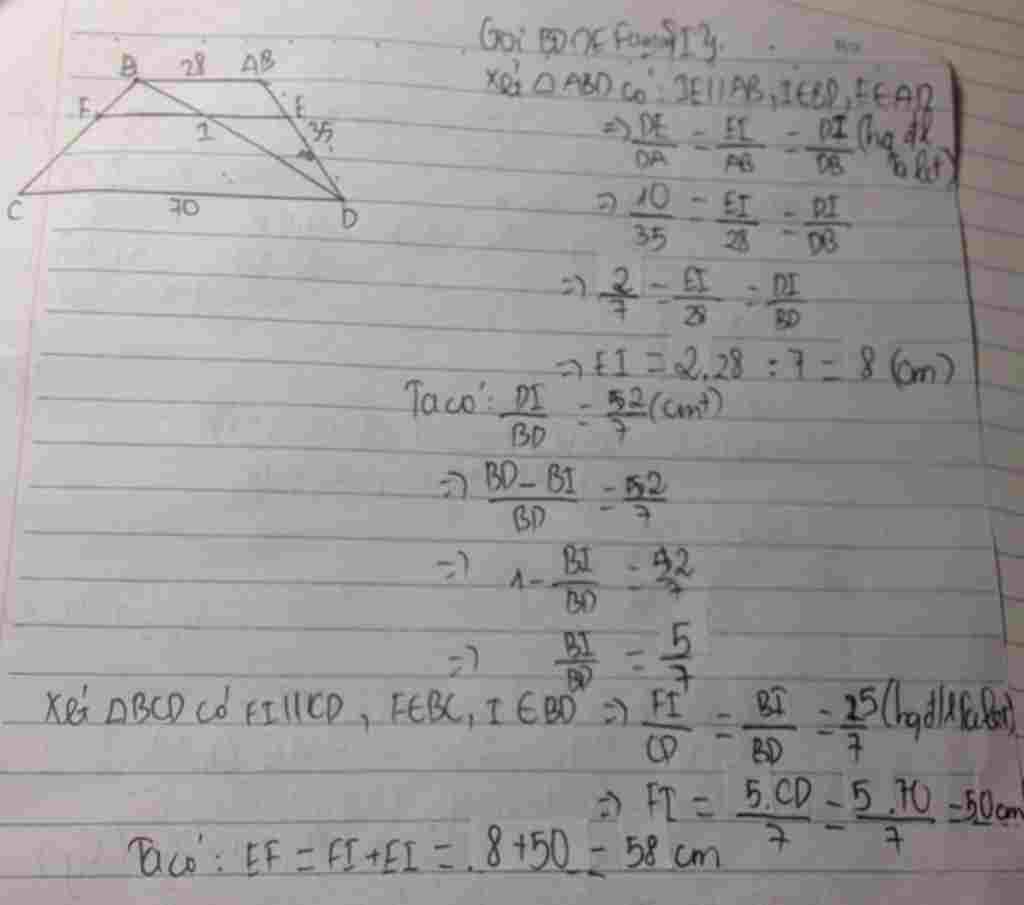 Gọi BD ∩ EF = {I}.
B 28 AB
Xét △ABD có: IE//AB, I∈BD, E∈AD
F I E 35
=> DE/DA = EI/AB = DI/DB (hq đl Talet)
C 70 D
=> 10/35 = EI/28 = DI/DB
=> 2/7 = EI/28 = DI/BD
=> EI = 2.28 : 7 = 8 (cm)
Ta có: DI/BD = 52/7 (cmt)
=> BD - BI/BD = 52/7
=> 1 - BI/BD = 52/7
=> BI/BD = 5/7
Xét △BCD có FI//CD, F∈BC, I∈BD => FI/CD = BI/BD = 25/7 (hq đ/l Talet)
=> FI = 5.CD/7 = 5.70/7 = 50 cm
Ta có: EF = FI + EI = 8 + 50 = 58 cm